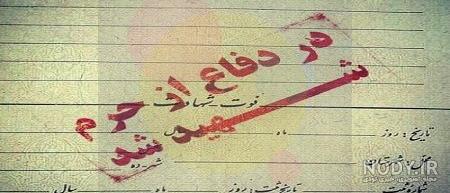 در دفاع از حرم
شهید شد
فوت شهادت
تاریخ : روز ماه
محل : شهرستان
شماره ثبت تاریخ ثبت : روز ماه سال
NODY.IR